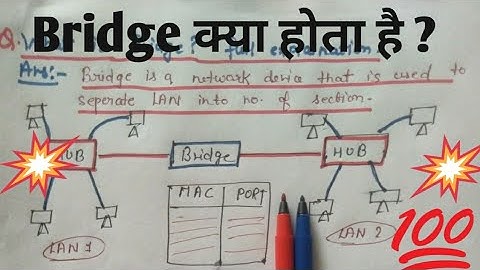 Bridge क्या होता है ?
Q.
full explanation
Ans:- Bridge is a network device that is used to
seperate LAN into no. of section.
HUB
Bridge
HUB
MAC
PORT
LAN 1
LAN 2
100